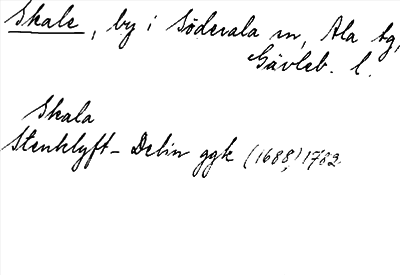 Skale, by i Söderala sn, Ala tg,
Gävleb. l.
Skala
Stenklyft - Delin ggk (1688) 1782